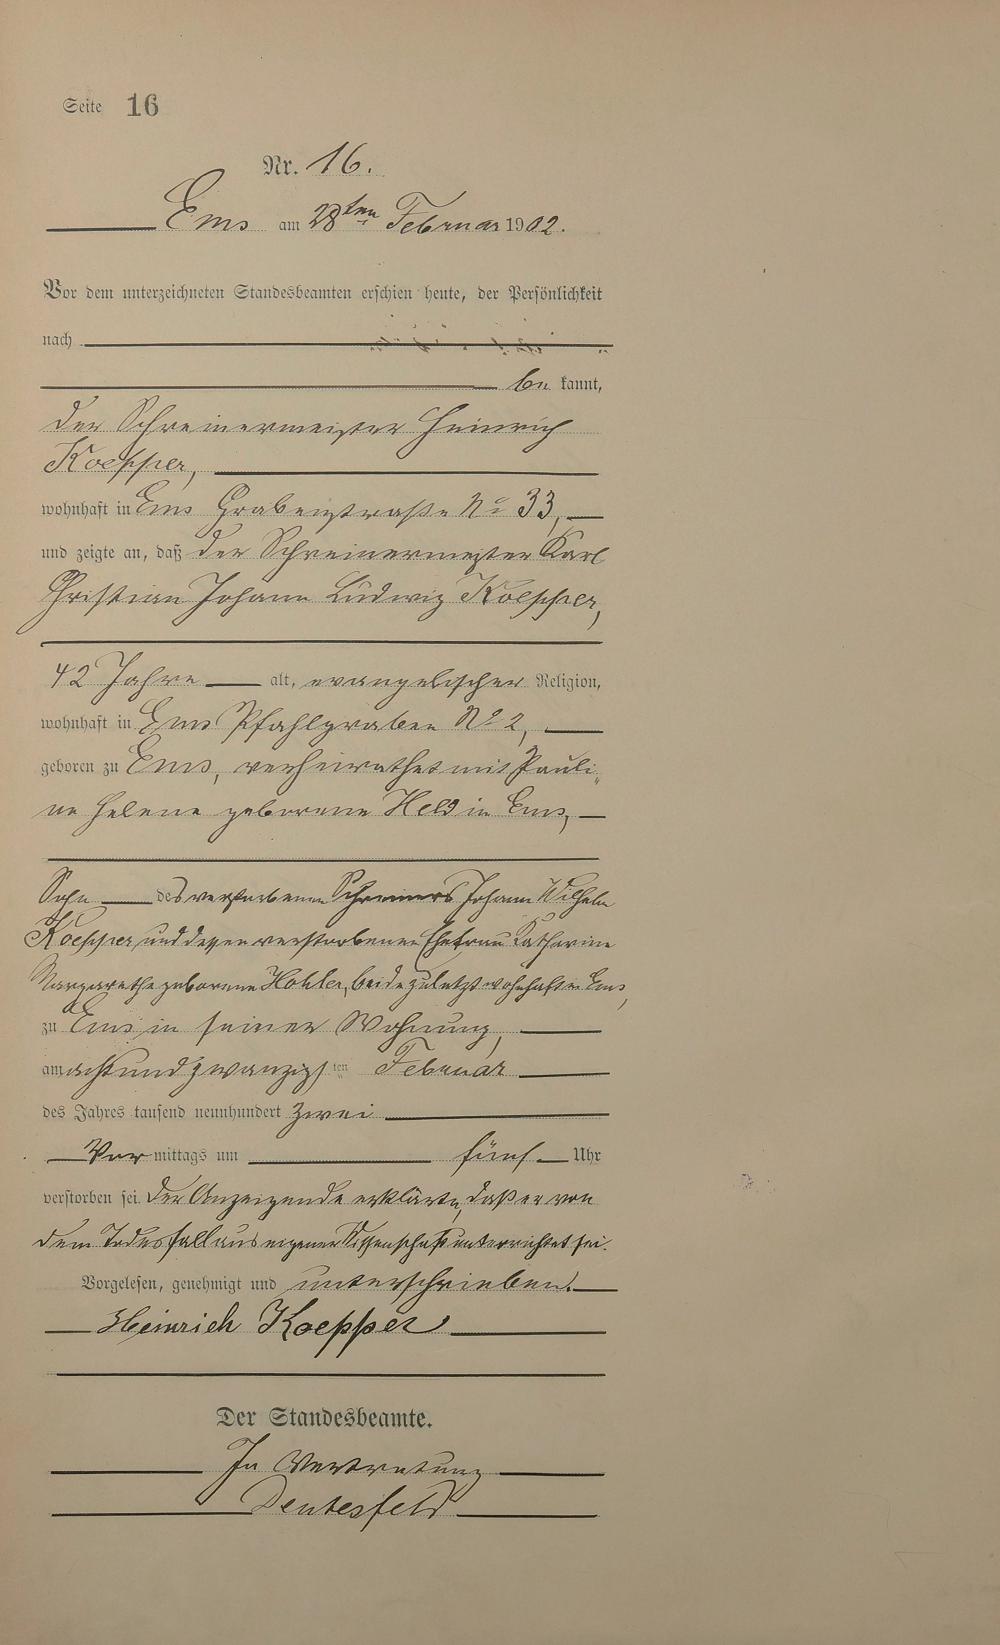 Seite 16
Nr. 16.
Ems am 28ten Februar 1902.
Vor dem unterzeichneten Standesbeamten erschien heute, der Persönlichkeit
nach
be kannt,
der Schreinermeister Heinrich
Koepper,
wohnhaft in Ems Grabenstraße No 33,
und zeigte an, daß der Schreinermeister Karl
Christian Johann Ludwig Koepper,
42 Jahre alt, evangelischer Religion,
wohnhaft in Ems Pfahlgraben No 2,
geboren zu Ems, verheirathet mit Pauli-
ne Helene geborene Held in Ems,
Sohn des verstorbenen Schreiners Johann Wilhelm
Koepper und dessen verstorbenen Ehefrau Katharine
Margarethe geborene Hohler, beide zuletzt wohnhaft in Ems,
zu Ems in seiner Wohnung,
am achtundzwanzigsten Februar
des Jahres tausend neunhundert zwei
Vor mittags um fünf Uhr
verstorben sei. Der Anzeigende erklärte, daß er von
dem Todesfall aus eigener Wissenschaft unterrichtet sei.
Vorgelesen, genehmigt und unterschrieben.
Heinrich Koepper
Der Standesbeamte.
In Vertretung